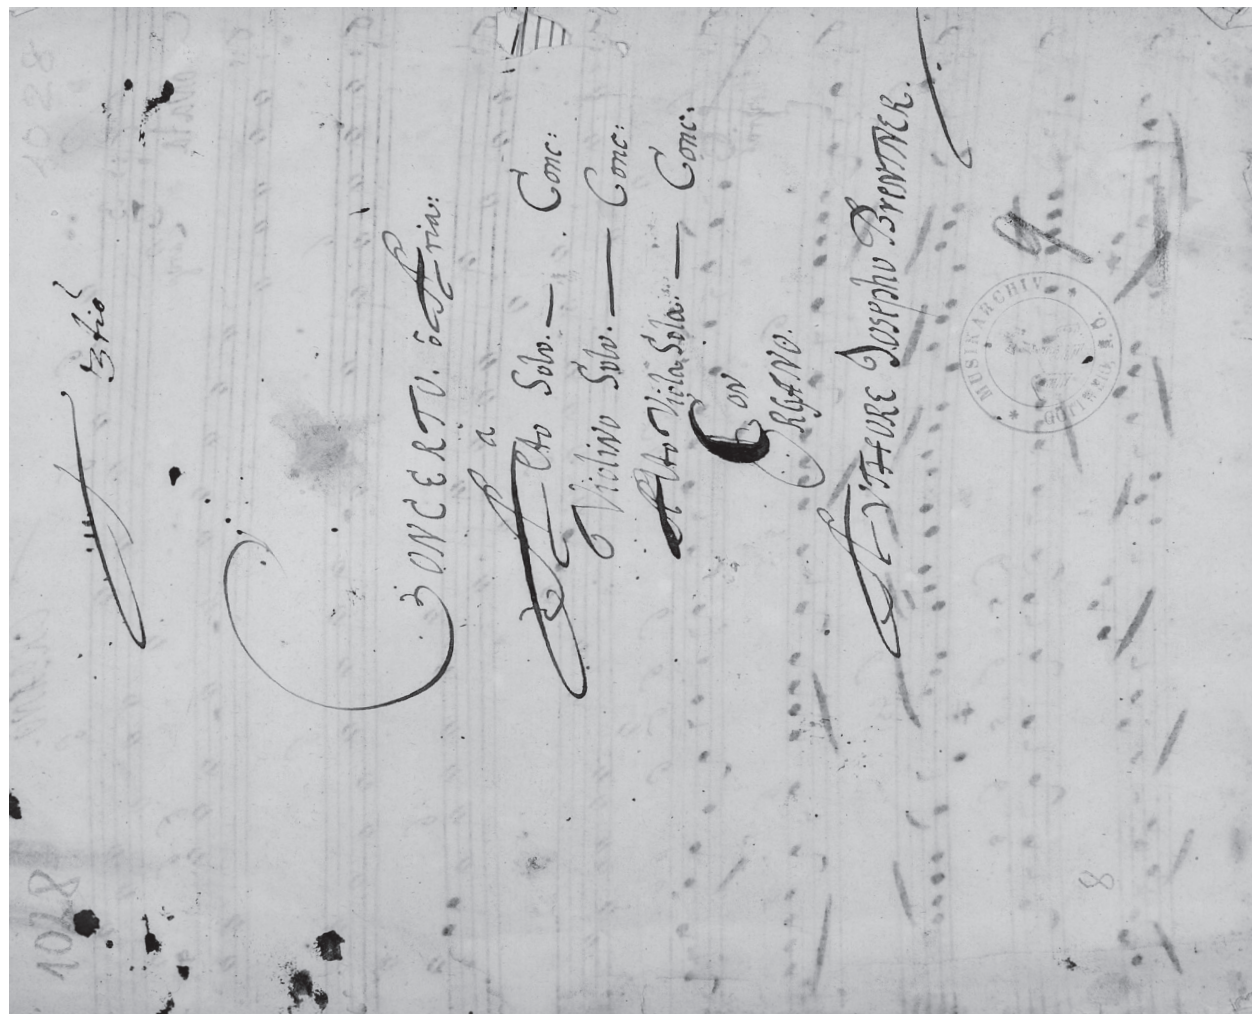 CONCERTO. ô Aria:
a
Alto Solo. — . Conc:
Violino Solo. — Conc:
Alto Viola Sola. — Conc.
Con
ORGANO.
AUTHORE Josepho BrENTNER.
* MUSIKARCHIV
8
1028